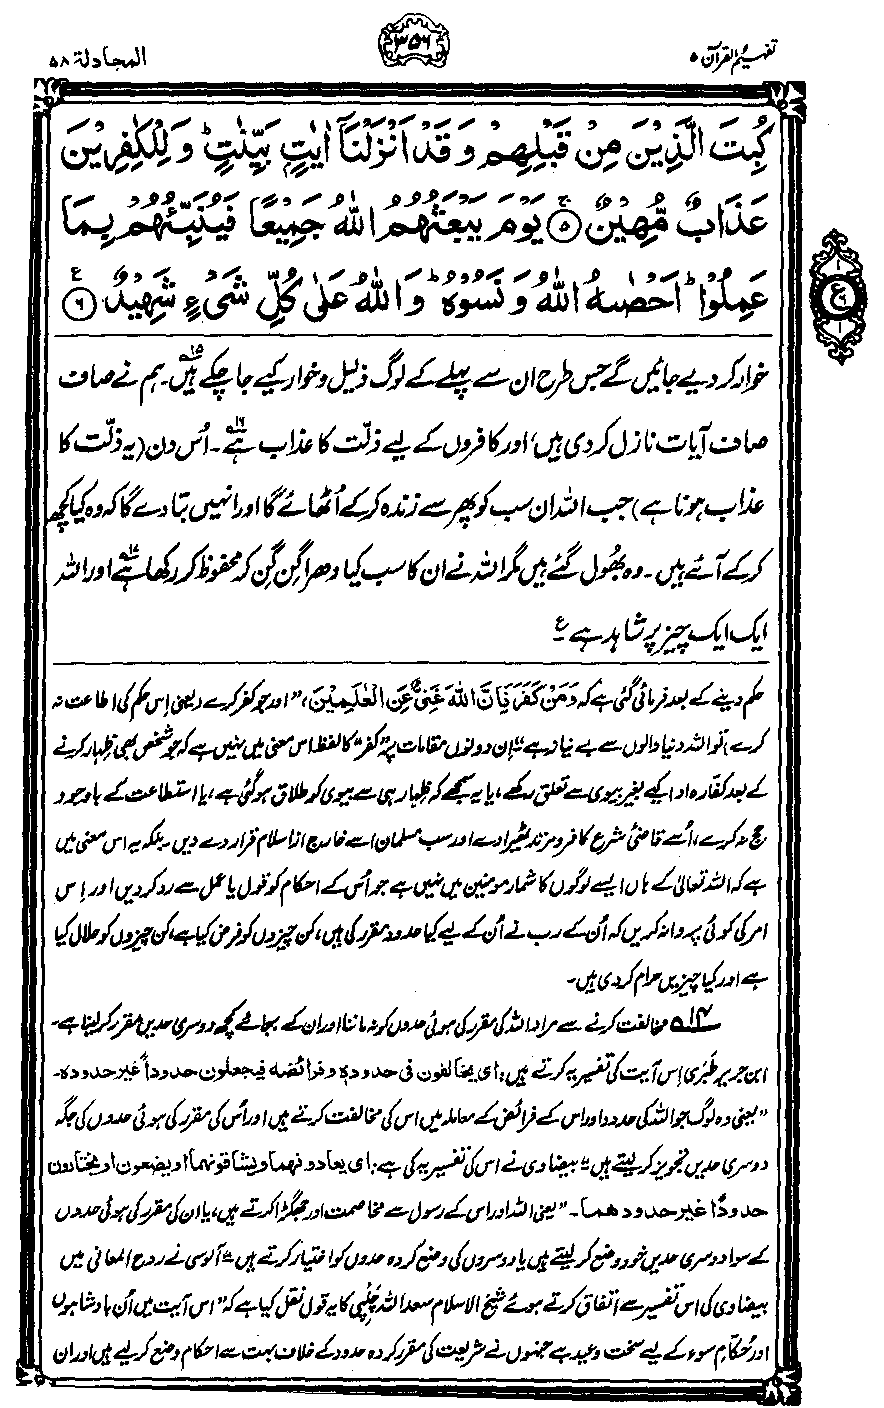 تفہیم القرآن ۵
۳۵۶
المجادلۃ ۵۸
كُبِتَ الَّذِيْنَ مِنْ قَبْلِهِمْ وَ قَدْ اَنْزَلْنَاۤ اٰيٰتٍۭ بَيِّنٰتٍ ؕ وَ لِلْكٰفِرِيْنَ
عَذَابٌ مُّهِيْنٌ ۝۵ يَوْمَ يَبْعَثُهُمُ اللّٰهُ جَمِيْعًا فَيُنَبِّئُهُمْ بِمَا
عَمِلُوْا ؕ اَحْصٰىهُ اللّٰهُ وَ نَسُوْهُ ؕ وَ اللّٰهُ عَلٰى كُلِّ شَيْءٍ شَهِيْدٌ ۝۶ ع
خوار کر دیے جائیں گے جس طرح ان سے پہلے کے لوگ ذلیل و خوار کیے جا چکے ہیں۱۵۔ ہم نے صاف
صاف آیات نازل کر دی ہیں، اور کافروں کے لیے ذلّت کا عذاب ہے۱۶۔ اُس دن (یہ ذلّت کا
عذاب ہونا ہے) جب اللہ ان سب کو پھر سے زندہ کر کے اُٹھائے گا اور انہیں بتا دے گا کہ وہ کیا کچھ
کر کے آئے ہیں۔ وہ بھُول گئے ہیں مگر اللہ نے ان کا سب کیا دھرا گِن گِن کر محفوظ کر رکھا ہے۱۷ اور اللہ
ایک ایک چیز پر شاہد ہے ع
حکم دینے کے بعد فرمائی گئی ہے کہ وَمَنْ كَفَرَ فَاِنَّ اللّٰهَ غَنِىٌّ عَنِ الْعٰلَمِيْنَ، "اور جو کفر کرے (یعنی اِس حکم کی اطاعت نہ
کرے) تو اللہ دنیا والوں سے بے نیاز ہے"۔ اِن دونوں مقامات پر "کفر" کا لفظ اس معنی میں نہیں ہے کہ جو شخص بھی ظِہار کرنے
کے بعد کفّارہ ادا کیے بغیر بیوی سے تعلق رکھے، یا یہ سمجھے کہ ظِہار ہی سے بیوی کو طلاق ہو گئی ہے، یا استطاعت کے باوجود
حج نہ کرے، اُسے قاضیٔ شرع کافر و مرتد ٹھیرا دے اور سب مسلمان اسے خارج از اسلام قرار دے دیں۔ بلکہ یہ اس معنی میں
ہے کہ اللہ تعالیٰ کے ہاں ایسے لوگوں کا شمار مومنین میں نہیں ہے جو اُس کے احکام کو قول یا عمل سے رد کر دیں اور اِس
امر کی کوئی پروا نہ کریں کہ اُن کے رب نے اُن کے لیے کیا حدود مقرر کی ہیں، کن چیزوں کو فرض کیا ہے، کن چیزوں کو حلال کیا
ہے اور کیا چیزیں حرام کر دی ہیں۔
۱۴؎ مخالفت کرنے سے مراد اللہ کی مقرر کی ہوئی حدوں کو نہ ماننا اور ان کے بجائے کچھ دوسری حدیں مقرر کر لینا ہے۔
ابن جریر طَبَری اِس آیت کی تفسیر یہ کرتے ہیں: ای یخالفون فی حدودہ و فرائضہ فیجعلون حدوداً غیر حدودہ۔
"یعنی وہ لوگ جو اللہ کی حدود اور اس کے فرائض کے معاملہ میں اس کی مخالفت کرتے ہیں اور اُس کی مقرر کی ہوئی حدوں کی جگہ
دوسری حدیں تجویز کر لیتے ہیں"۔ بیضاوی نے اس کی تفسیر یہ کی ہے: ای یعادونھما و یشاقونھما او یضعون او یختارون
حدودًا غیر حدودھما۔ "یعنی اللہ اور اس کے رسول سے مخاصمت اور جھگڑا کرتے ہیں، یا ان کی مقرر کی ہوئی حدوں
کے سوا دوسری حدیں خود وضع کر لیتے ہیں یا دوسروں کی وضع کردہ حدوں کو اختیار کرتے ہیں"۔ آلوسی نے روح المعانی میں
بیضاوی کی اس تفسیر سے اتفاق کرتے ہوئے شیخ الاسلام سعد اللہ چَلَپی کا یہ قول نقل کیا ہے کہ "اس آیت میں اُن بادشاہوں
اور حُکّامِ سوء کے لیے سخت وعید ہے جنھوں نے شریعت کی مقرر کردہ حدود کے خلاف بہت سے احکام وضع کر لیے ہیں اور ان